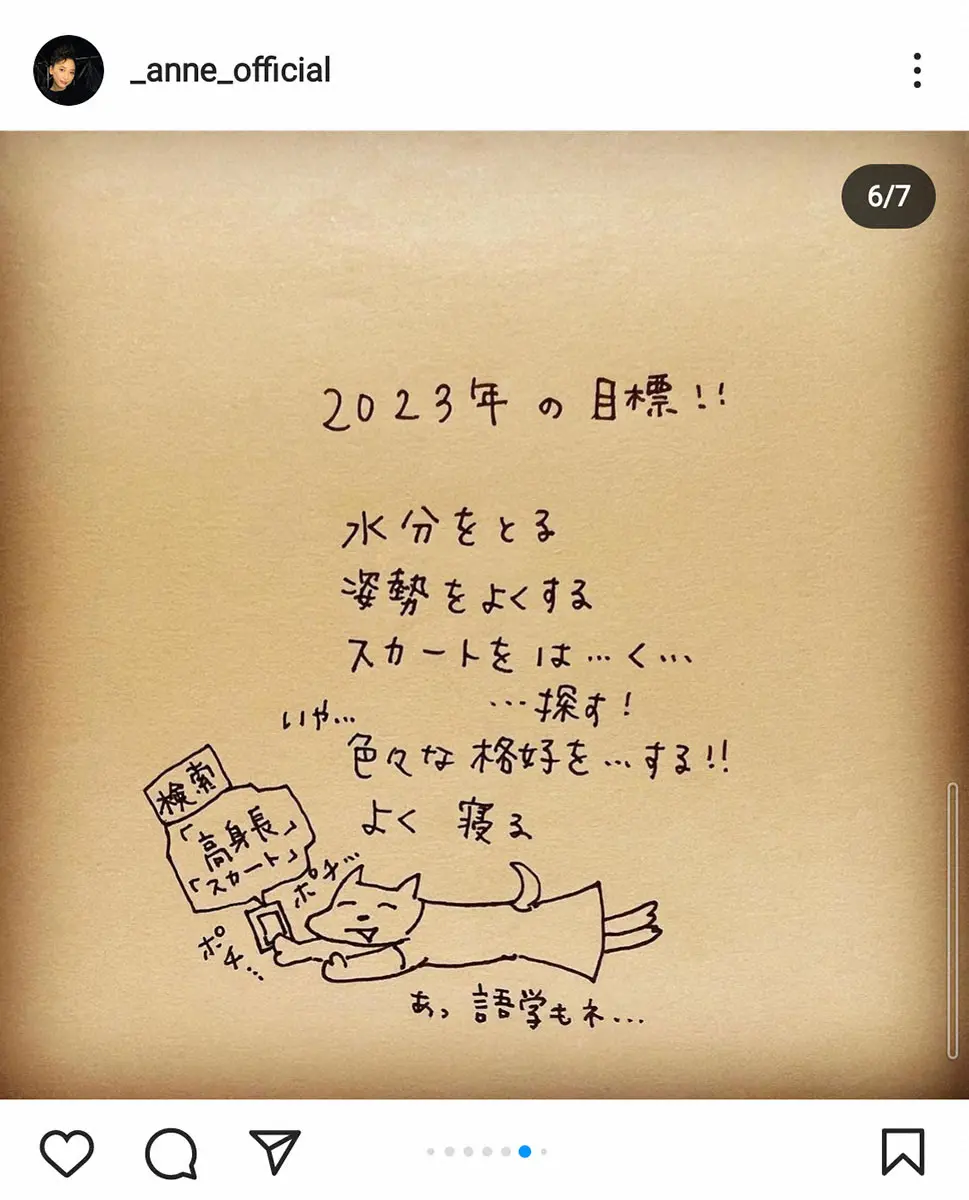 _anne_official
6/7
2023年の目標!!
水分をとる
姿勢をよくする
スカートをは…く…
…探す!
いや…
色々な格好を…する!!
よく 寝る
検索
「高身長」
「スカート」
ポチ…
ポチ…
あっ 語学もネ…